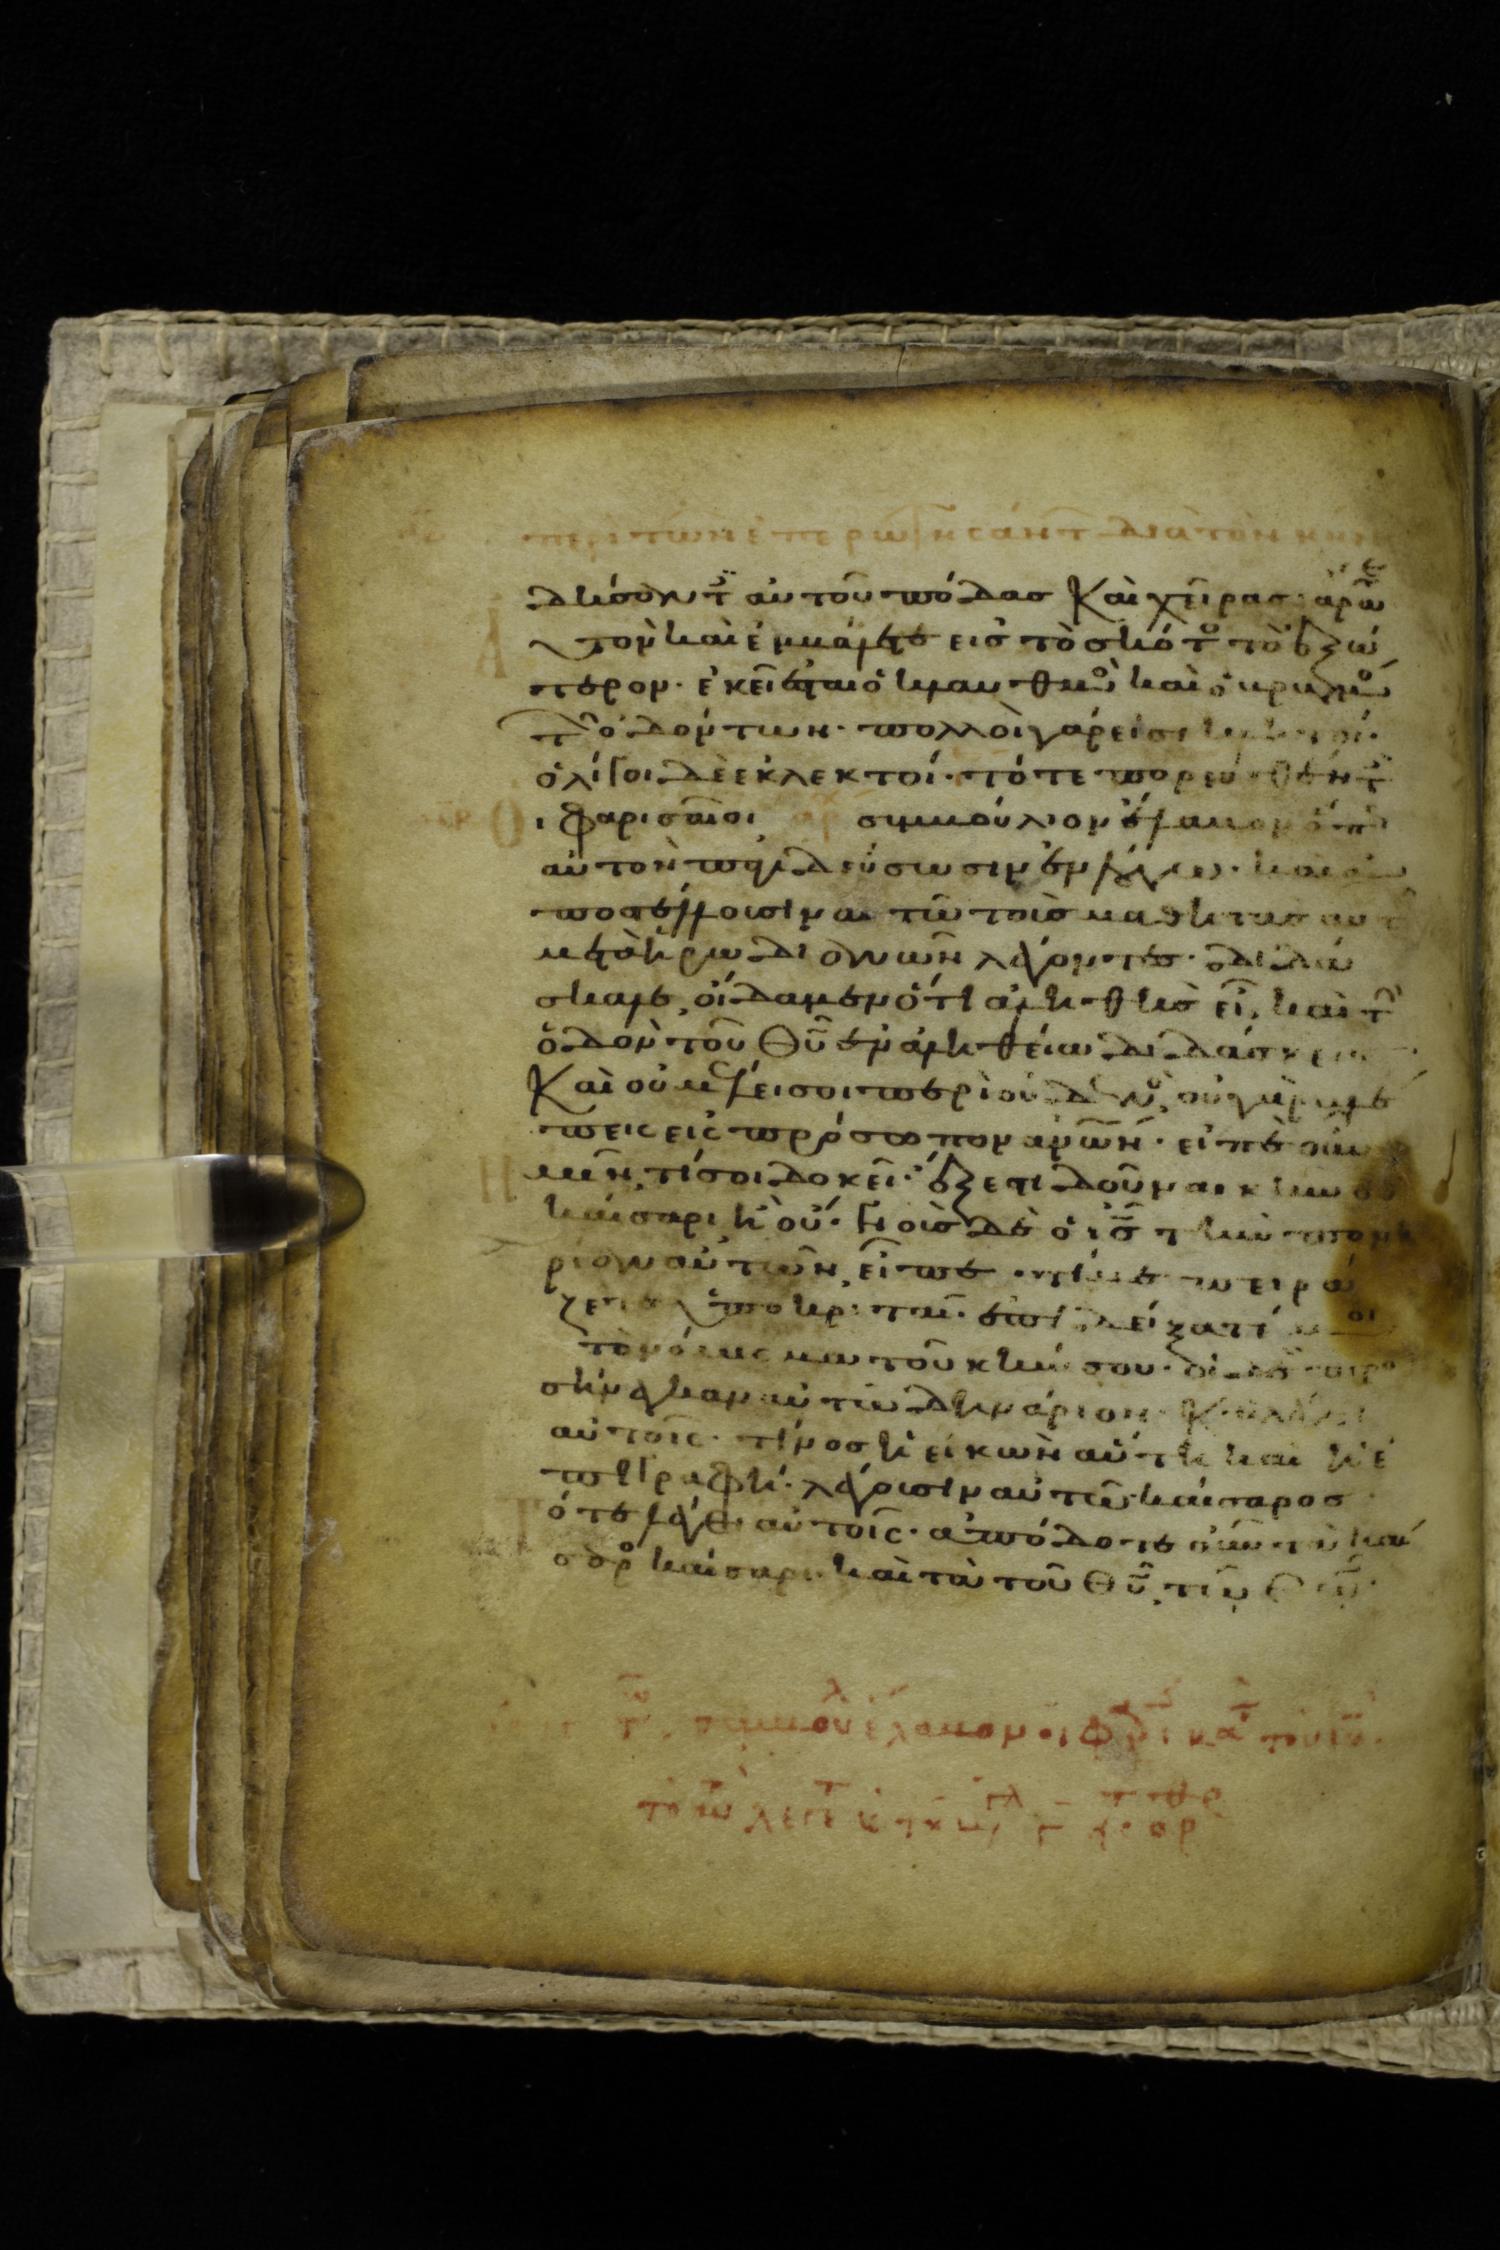 περὶ τῶν ἐπερωτησάντ διὰ τὸν κῆνσ
δήσαντ αὐτοῦ πόδας Καὶ χεῖρας· ἄρατε
αὐτὸν καὶ ἐμβάλετε εἰς τὸ σκότος τὸ ἐξώ
τερον· ἐκεῖ ἔσται ὁ κλαυθμὸς καὶ ὁ βρυγμὸς
τῶν ὀδόντων· πολλοὶ γάρ εἰσι κλητοί·
ὀλίγοι δὲ ἐκλεκτοί· τότε πορευθέντ
οἱ φαρισαῖοι συμβούλιον ἔλαβον ὅπως
αὐτὸν παγιδεύσωσιν ἐν λόγω· καὶ ἀ
ποστέλλουσιν αὐτῶ τοὺς μαθητὰς αὐτ
μετὰ ἡρωδιανῶν λέγοντες· διδά
σκαλε, οἴδαμεν ὅτι ἀληθὴς εἶ, καὶ τὴν
ὁδὸν τοῦ Θῦ ἐν ἀληθεία διδάσκεις
Καὶ οὐ μέλει σοι περὶ οὐδενός, οὐ γὰρ βλέ
πεις εἰς πρόσωπον ἀνῶν· εἰπὲ οὖν
ἡμῖν, τί σοι δοκεῖ· ἔξεστι δοῦναι κῆνσον
καίσαρι, ἢ οὔ· γνοὺς δὲ ὁ ις τὴν πονη
ρίαν αὐτῶν, εἶπε· τί με πειρά
ζετε ὑποκριταί· ἐπιδείξατέ μοι
τὸ νόμισμα τοῦ κήνσου· οἱ δὲ προ
σήνεγκαν αὐτῶ δηνάριον· Καὶ λέγει
αὐτοῖς· τίνος ἡ εἰκὼν αὕτη καὶ ἡ ἐ
πιγραφή· λέγουσιν αὐτῶ καίσαρος
τότε λέγει αὐτοῖς· ἀπόδοτε οὖν τὰ καί
σαρος καίσαρι· καὶ τὰ τοῦ Θῦ, τῶ Θῶ·